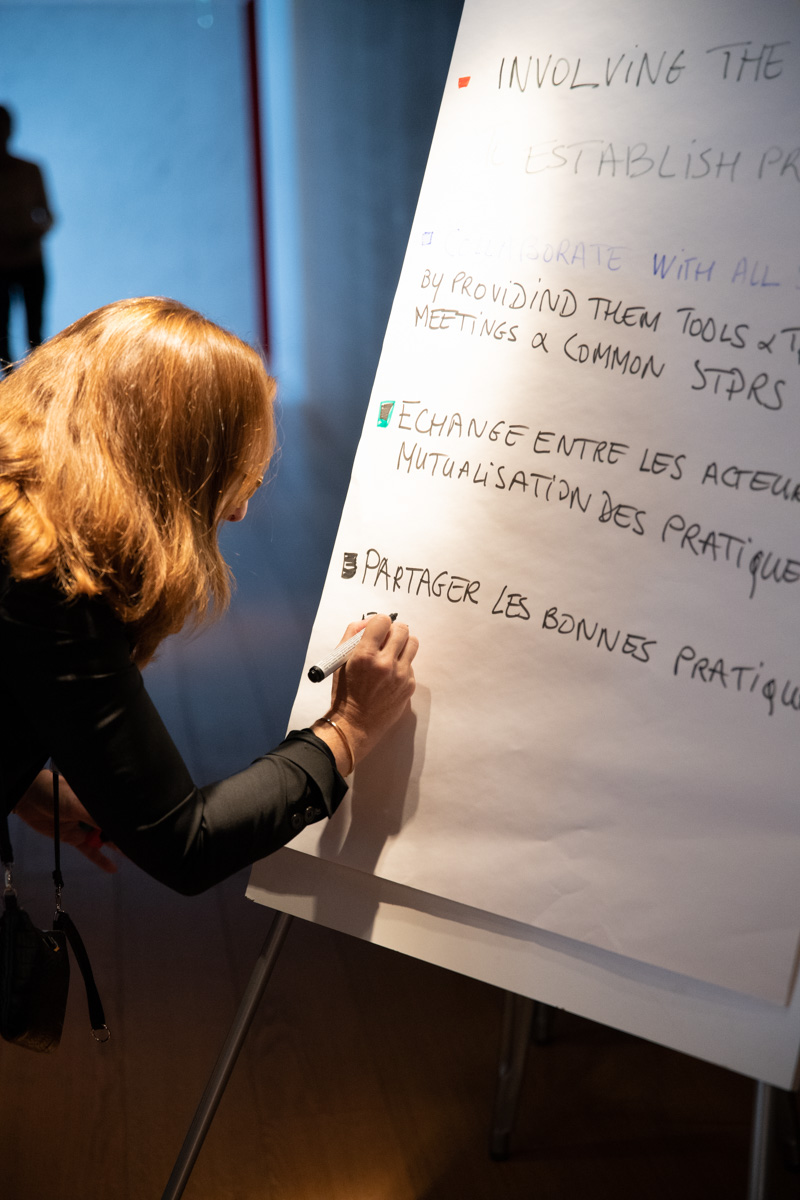 INVOLVING THE
ESTABLISH PR
COLLABORATE WITH ALL
BY PROVIDIND THEM TOOLS & T
MEETINGS & COMMON STPRS
ECHANGE ENTRE LES ACTEUR
MUTUALISATION DES PRATIQUE
PARTAGER LES BONNES PRATIQU